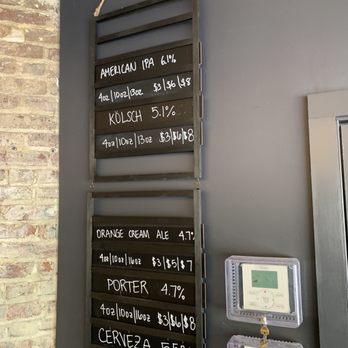 AMERICAN IPA 6.1%
4oz|10oz|13oz $3|$6|$8
KÖLSCH 5.1%
4oz|10oz|13oz $3|$6|$8
ORANGE CREAM ALE 4.7%
4oz|10oz|16oz $3|$5|$7
PORTER 4.7%
4oz|10oz|16oz $3|$6|$8
CERVEZA